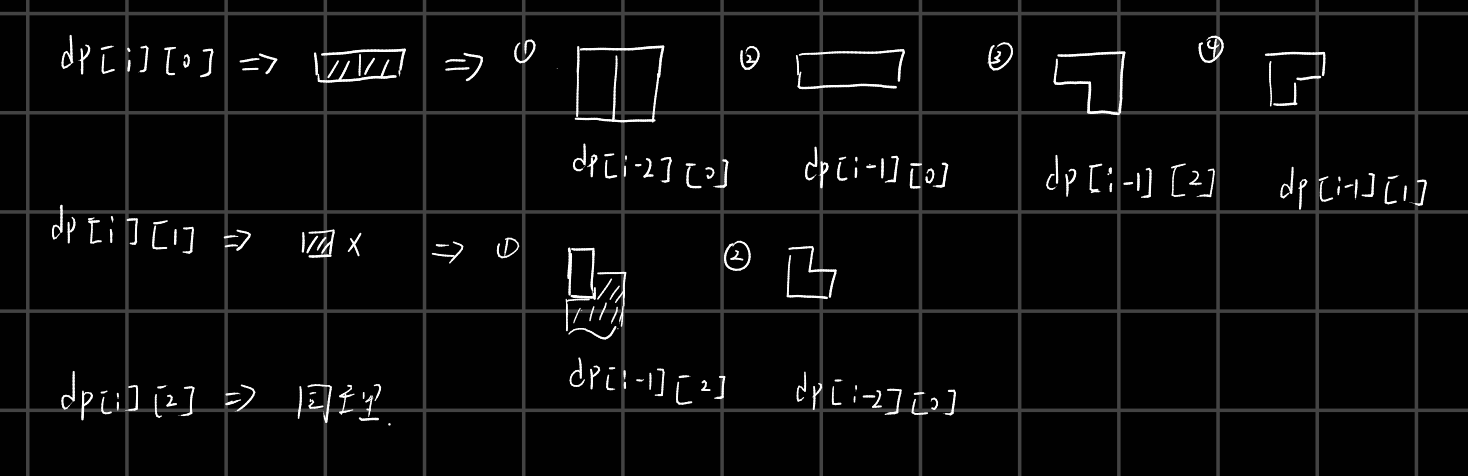 dp[i][0] => => ① ② ③ ④
dp[i-2][0] dp[i-1][0] dp[i-1][2] dp[i-1][1]
dp[i][1] => x => ① ②
dp[i-1][2] dp[i-2][0]
dp[i][2] => 同理.